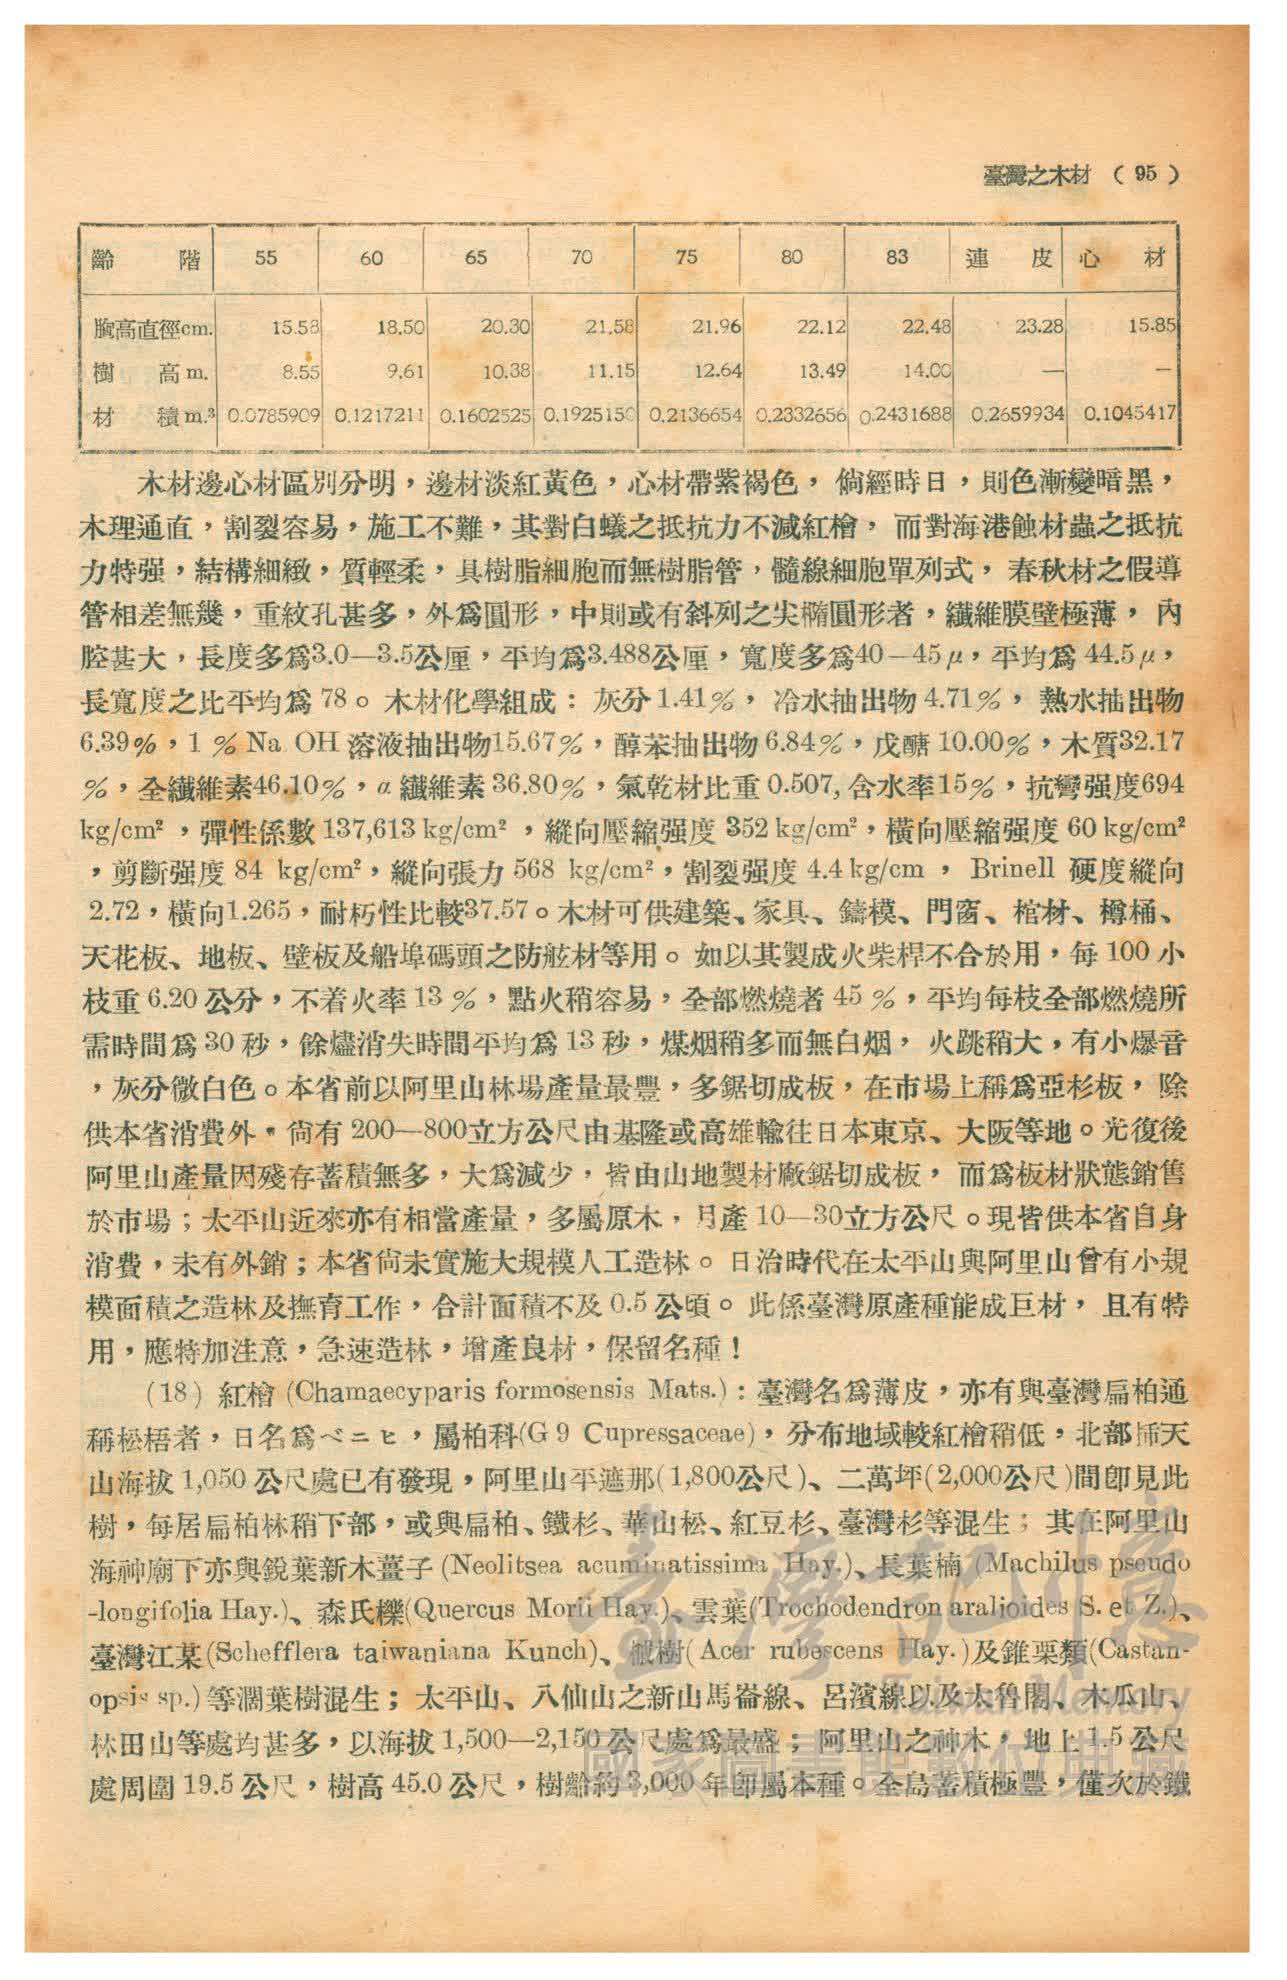 臺灣之木材 ( 95 )
齡 階 55 60 65 70 75 80 83 連 皮 心 材
胸高直徑cm. 15.58 18.50 20.30 21.58 21.96 22.12 22.48 23.28 15.85
樹 高 m. 8.55 9.61 10.38 11.15 12.64 13.49 14.00 — —
材 積 m.³ 0.0785909 0.1217211 0.1602525 0.1925150 0.2136654 0.2332656 0.2431688 0.2659934 0.1045417
木材邊心材區別分明，邊材淡紅黃色，心材帶紫褐色，倘經時日，則色漸變暗黑，
木理通直，割裂容易，施工不難，其對白蟻之抵抗力不減紅檜，而對海港蝕材蟲之抵抗
力特强，結構細緻，質輕柔，具樹脂細胞而無樹脂管，髓線細胞單列式，春秋材之假導
管相差無幾，重紋孔甚多，外爲圓形，中則或有斜列之尖橢圓形者，纖維膜壁極薄，內
腔甚大，長度多爲3.0—3.5公厘，平均爲3.488公厘，寬度多爲40—45μ，平均爲44.5μ，
長寬度之比平均爲78。木材化學組成：灰分1.41%，冷水抽出物4.71%，熱水抽出物
6.39%，1 % Na OH 溶液抽出物15.67%，醇苯抽出物6.84%，戊醣10.00%，木質32.17
%，全纖維素46.10%，α 纖維素36.80%，氣乾材比重0.507, 含水率15%，抗彎强度694
kg/cm² ，彈性係數137,613 kg/cm² ，縱向壓縮强度 352 kg/cm²，橫向壓縮强度 60 kg/cm²
，剪斷强度 84 kg/cm²，縱向張力 568 kg/cm²，割裂强度 4.4 kg/cm ， Brinell 硬度縱向
2.72，橫向1.265，耐朽性比較37.57。木材可供建築、家具、鑄模、門窗、棺材、樽桶、
天花板、地板、壁板及船埠碼頭之防舷材等用。如以其製成火柴桿不合於用，每100小
枝重6.20公分，不着火率13 %，點火稍容易，全部燃燒者45 %，平均每枝全部燃燒所
需時間爲30秒，餘燼消失時間平均爲13秒，煤烟稍多而無白烟，火跳稍大，有小爆音
，灰分微白色。本省前以阿里山林場產量最豐，多鋸切成板，在市場上稱爲亞杉板，除
供本省消費外，尙有200—800立方公尺由基隆或高雄輸往日本東京、大阪等地。光復後
阿里山產量因殘存蓄積無多，大爲減少，皆由山地製材廠鋸切成板，而爲板材狀態銷售
於市場；太平山近來亦有相當產量，多屬原木，月產10—30立方公尺。現皆供本省自身
消費，未有外銷；本省尙未實施大規模人工造林。日治時代在太平山與阿里山曾有小規
模面積之造林及撫育工作，合計面積不及0.5公頃。此係臺灣原產種能成巨材，且有特
用，應特加注意，急速造林，增產良材，保留名種！
(18) 紅檜 (Chamaecyparis formosensis Mats.)：臺灣名爲薄皮，亦有與臺灣扁柏通
稱松梧者，日名爲ベニヒ，屬柏科(G 9 Cupressaceae)，分布地域較紅檜稍低，北部插天
山海拔1,050公尺處已有發現，阿里山平遮那(1,800公尺)、二萬坪(2,000公尺)間卽見此
樹，每居扁柏林稍下部，或與扁柏、鐵杉、華山松、紅豆杉、臺灣杉等混生；其在阿里山
海神廟下亦與銳葉新木薑子 (Neolitsea acuminatissima Hay.)、長葉楠 (Machilus pseudo
-longifolia Hay.)、森氏櫟(Quercus Morii Hay.)、雲葉(Trochodendron aralioides S. et Z.)、
臺灣江某(Schefflera taiwaniana Kunch)、槭樹(Acer rubescens Hay.)及錐栗類(Castan-
opsis sp.)等濶葉樹混生；太平山、八仙山之新山馬崙線、呂濱線以及太魯閣、木瓜山、
林田山等處均甚多，以海拔1,500—2,150公尺處爲最盛；阿里山之神木，地上1.5公尺
處周圍19.5公尺，樹高45.0公尺，樹齡約3,000年卽屬本種。全島蓄積極豐，僅次於鐵
臺灣記憶
Taiwan Memory
國家圖書館數位典藏